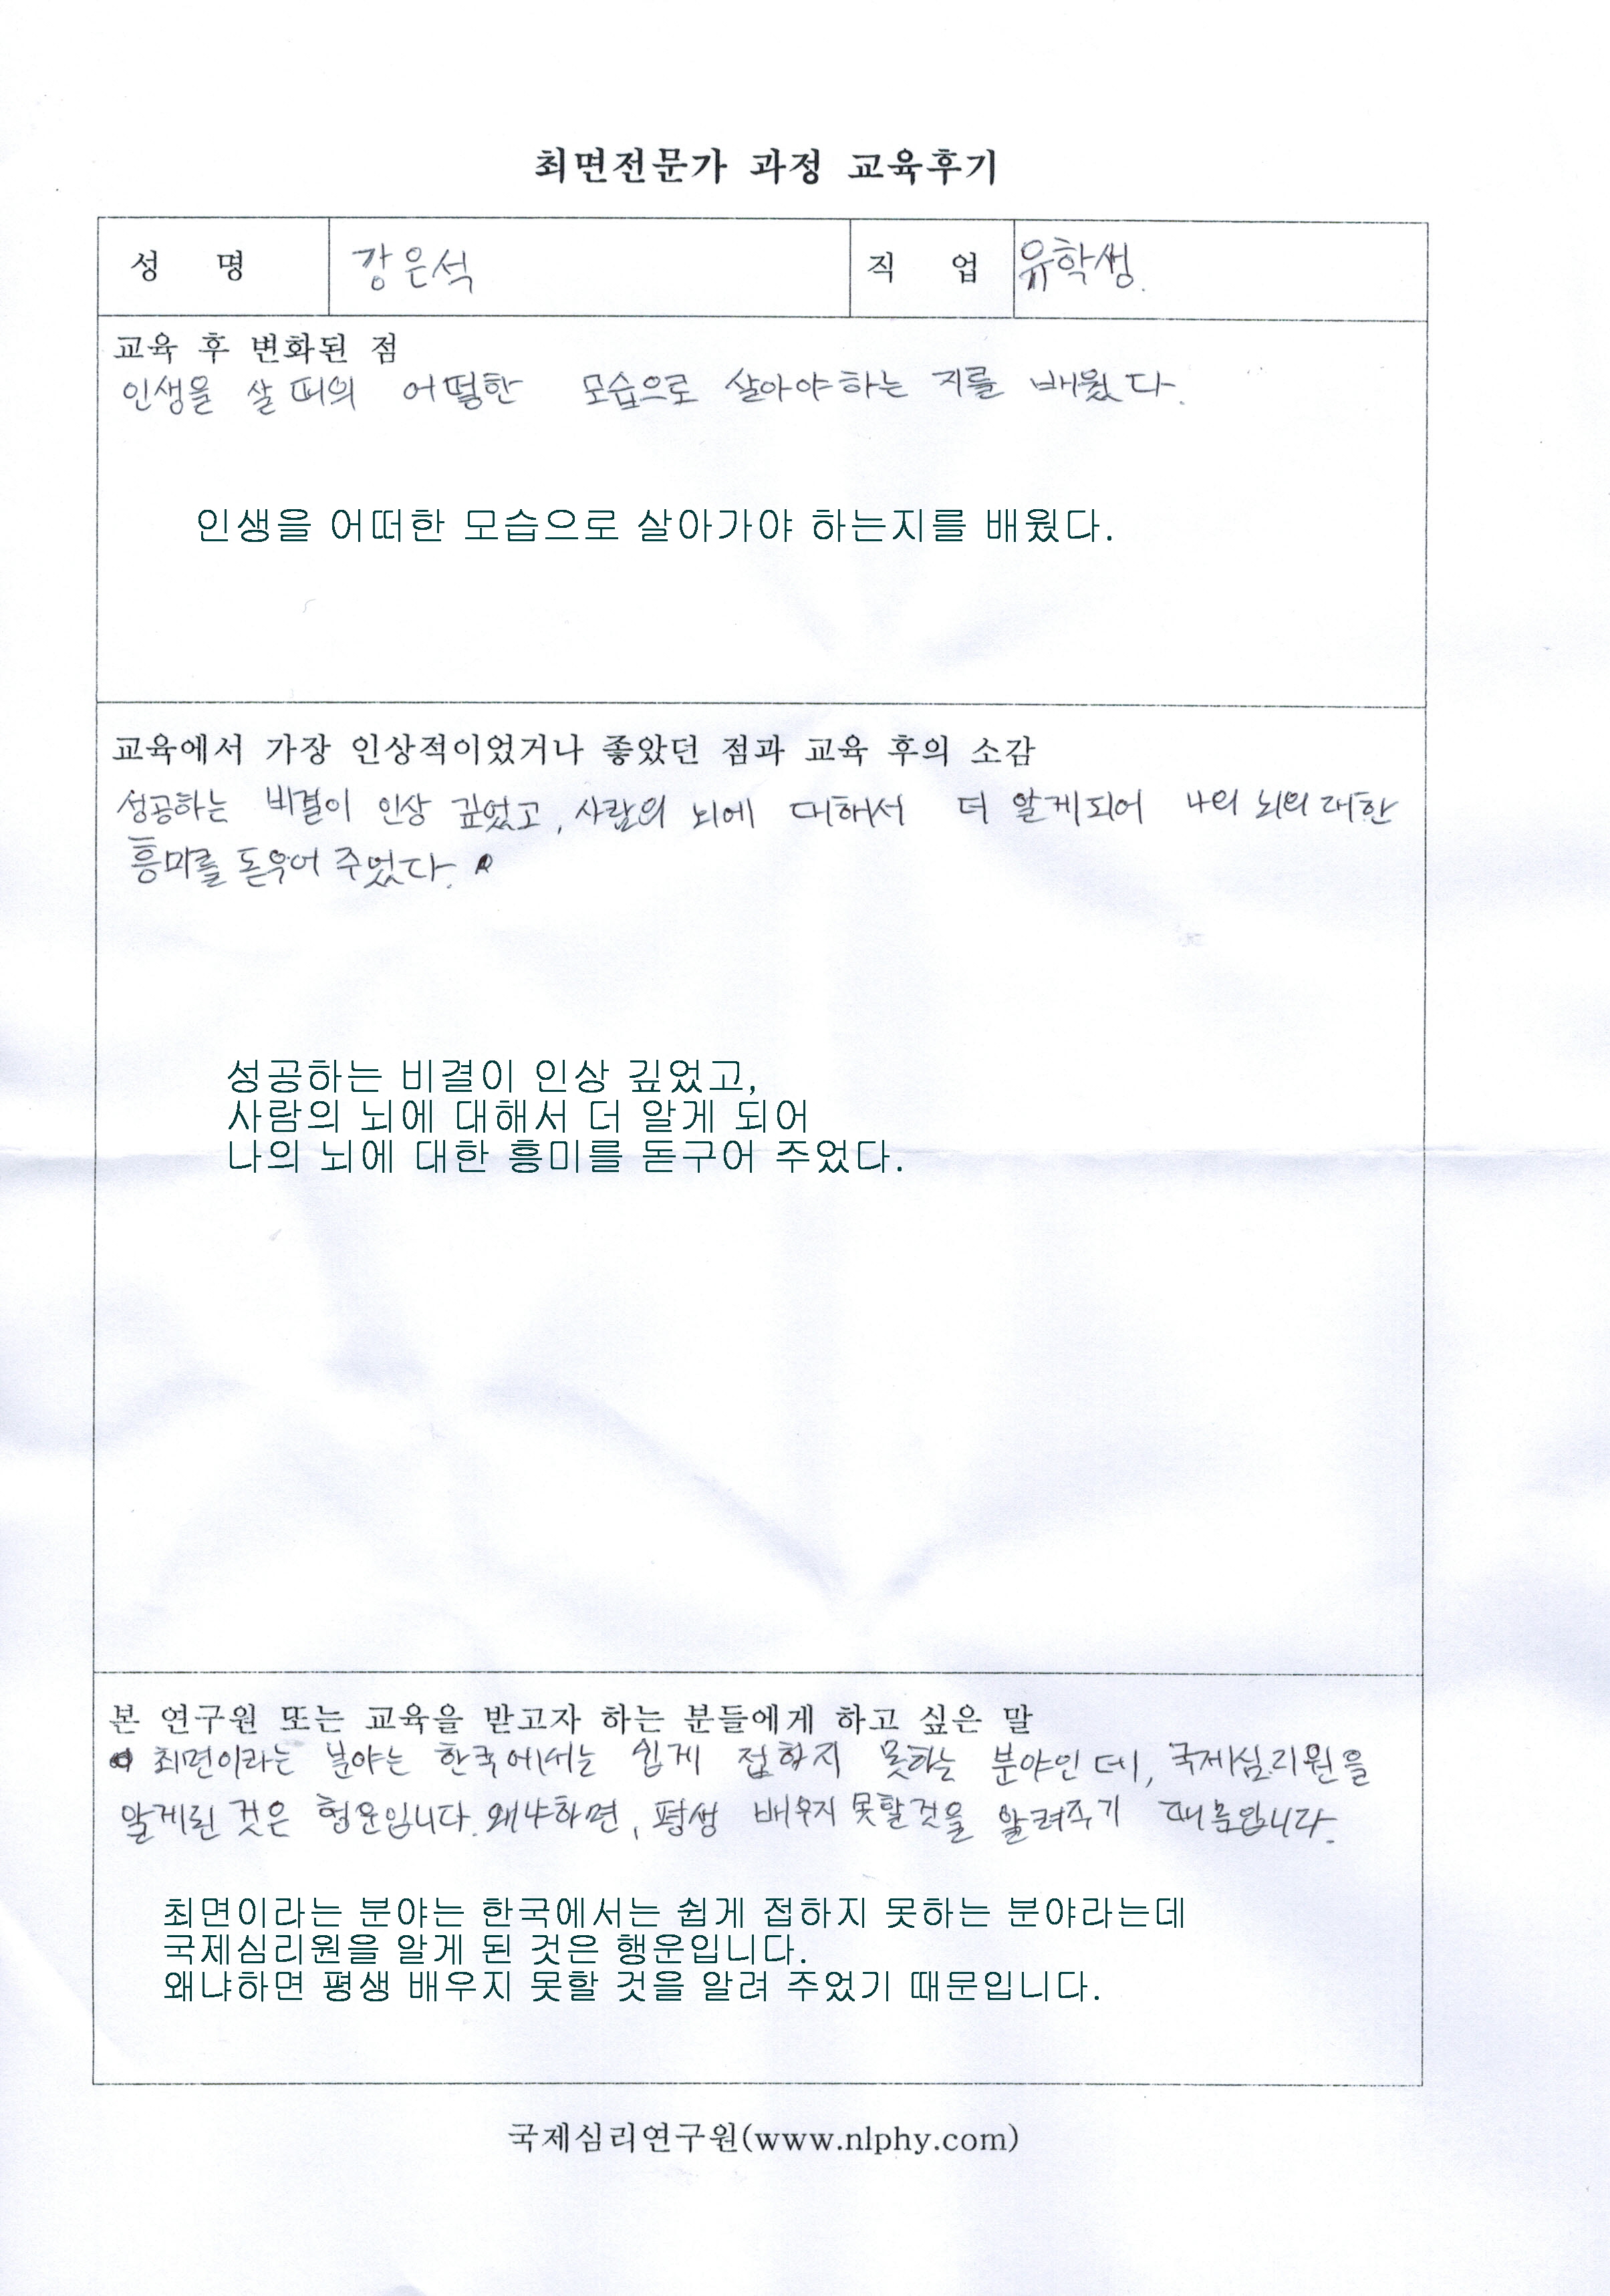 최면전문가 과정 교육후기
성 명 강은석 직 업 유학생.
교육 후 변화된 점
인생을 살 때의 어떻한 모습으로 살아야하는 지를 배웠다.
인생을 어떠한 모습으로 살아가야 하는지를 배웠다.
교육에서 가장 인상적이었거나 좋았던 점과 교육 후의 소감
성공하는 비결이 인상 깊었고, 사람의 뇌에 대해서 더 알게되어 나의 뇌의 대한
흥미를 돋우어 주었다.
성공하는 비결이 인상 깊었고,
사람의 뇌에 대해서 더 알게 되어
나의 뇌에 대한 흥미를 돋구어 주었다.
본 연구원 또는 교육을 받고자 하는 분들에게 하고 싶은 말
최면이라는 분야는 한국에서는 쉽게 접하지 못하는 분야인데, 국제심리원을
알게된 것은 행운입니다. 왜냐하면, 평생 배우지 못할것을 알려주기 때문입니다.
최면이라는 분야는 한국에서는 쉽게 접하지 못하는 분야라는데
국제심리원을 알게 된 것은 행운입니다.
왜냐하면 평생 배우지 못할 것을 알려 주었기 때문입니다.
국제심리연구원(www.nlphy.com)